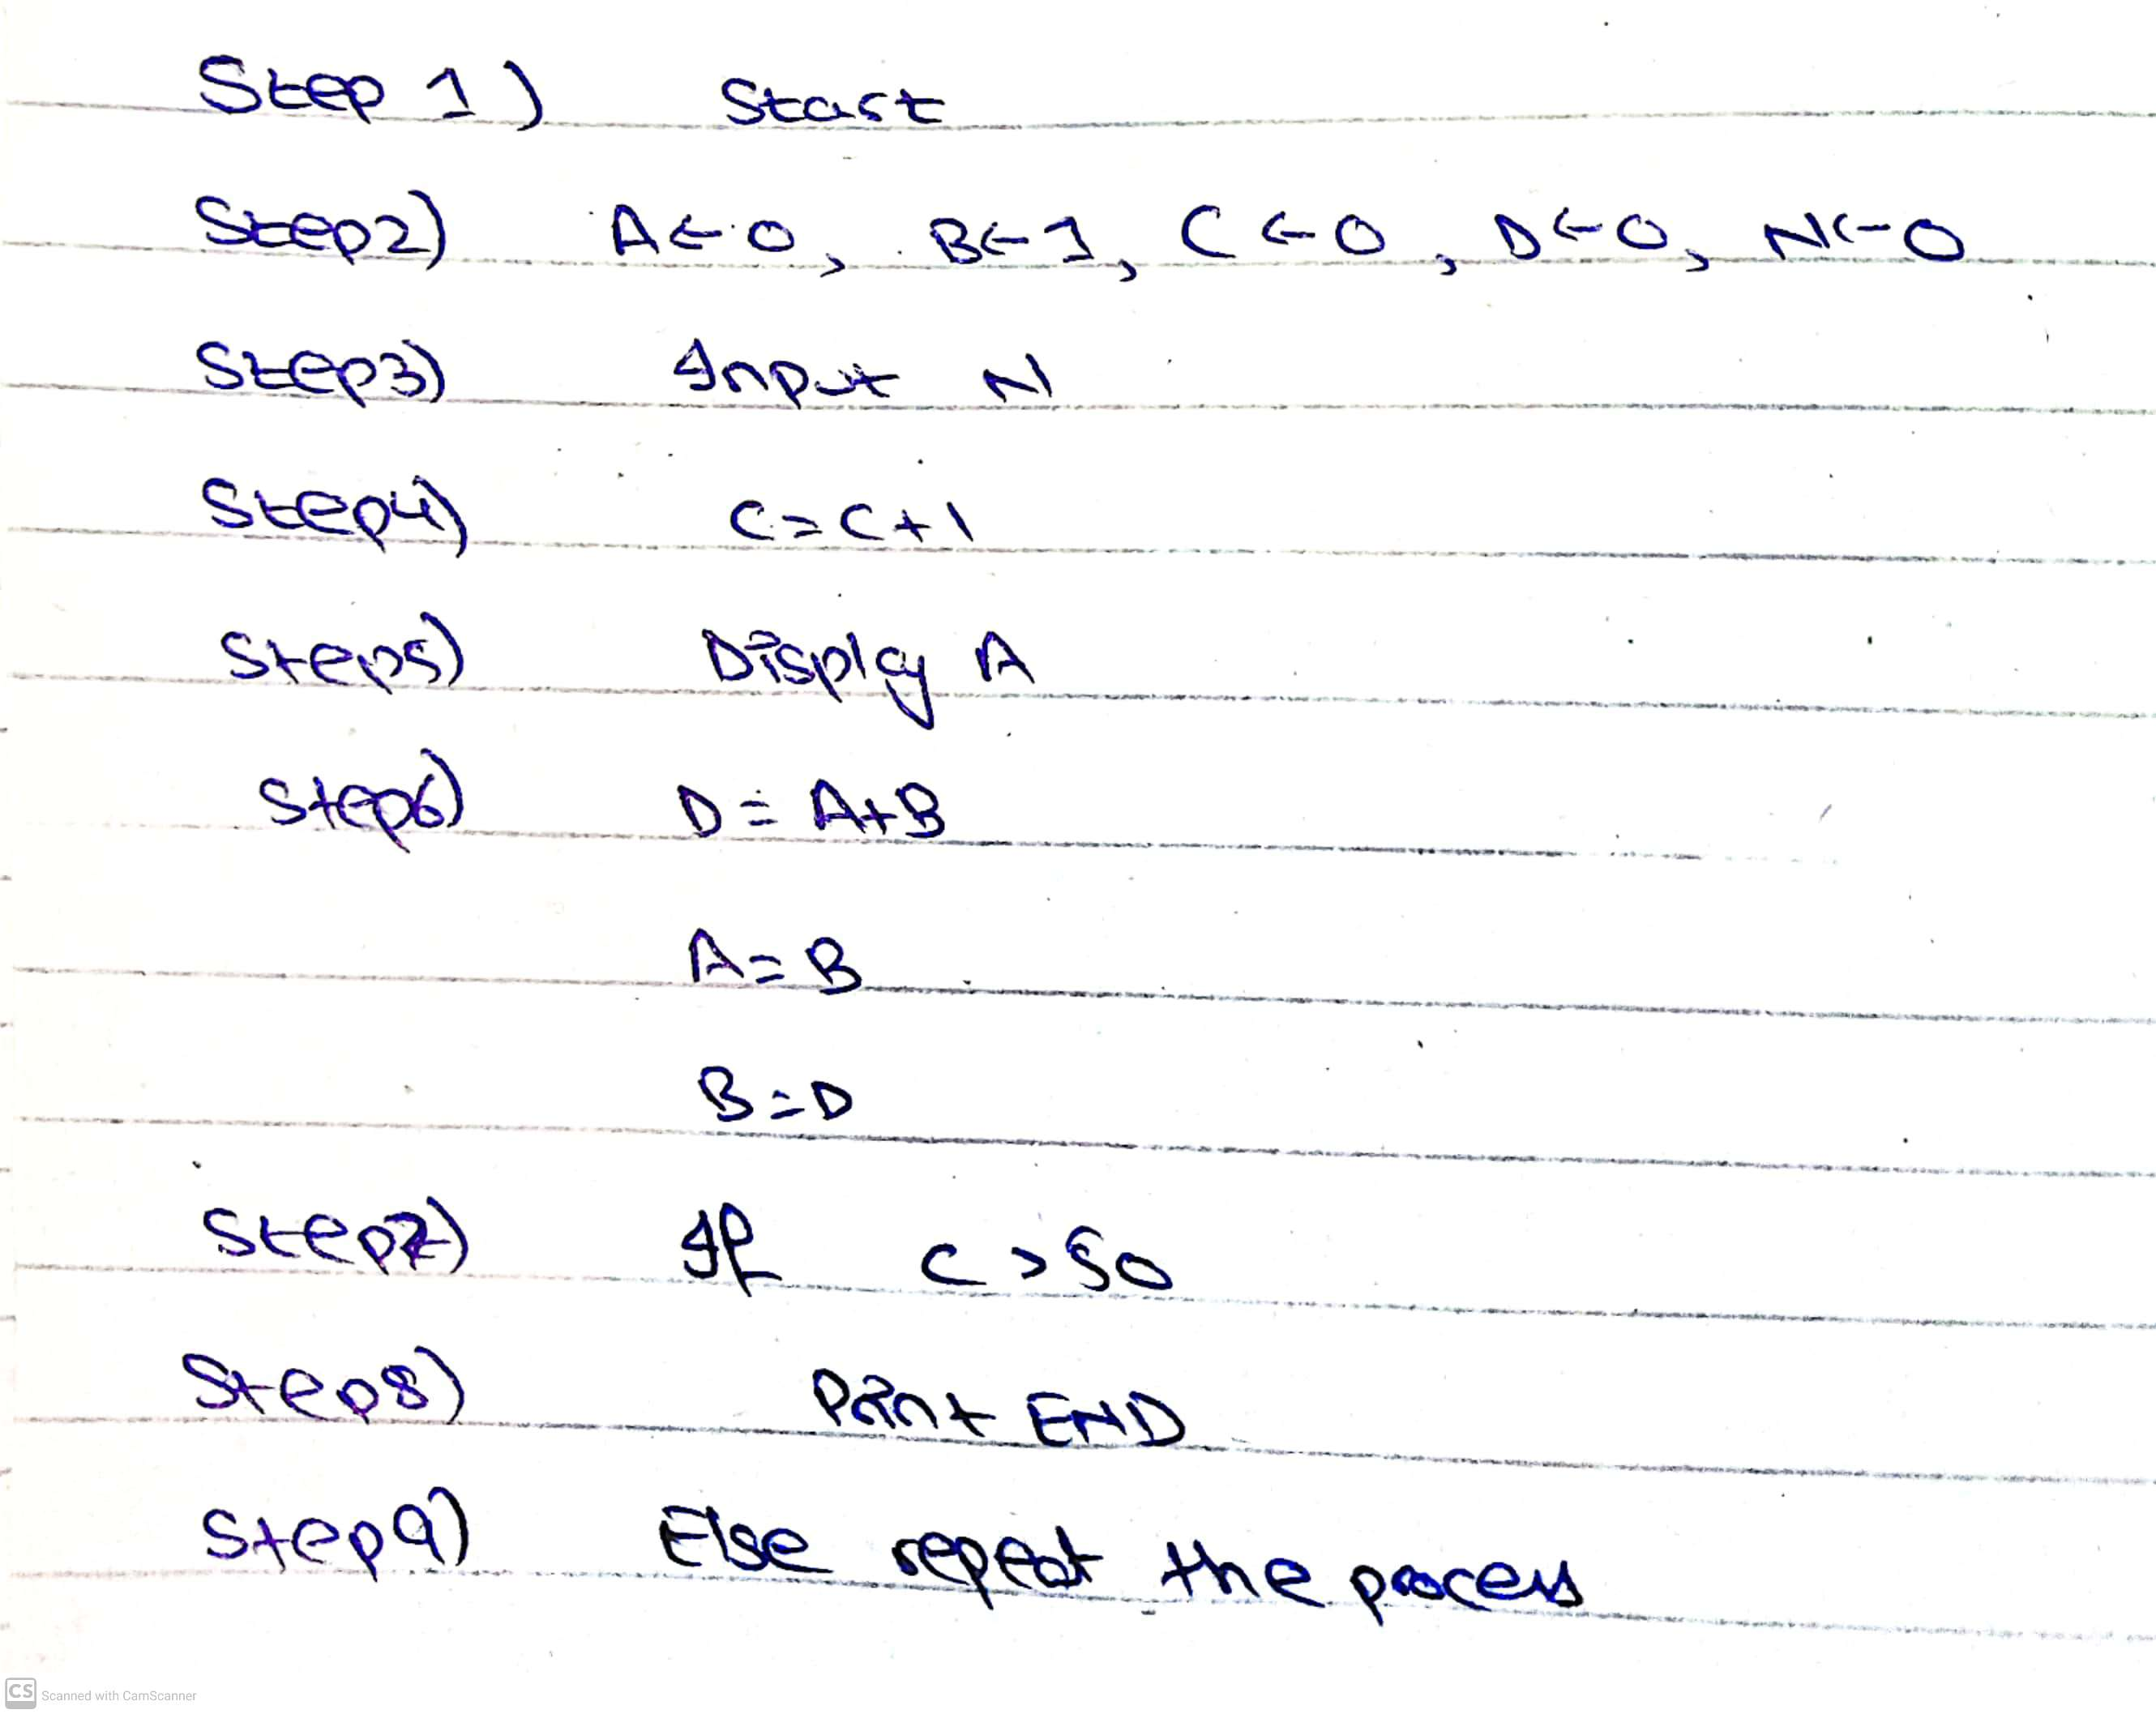 Step 1) Start
Step2) A←0, B←1, C←0, D←0, N←0
Step3) Input N
Step4) C=C+1
Step5) Display A
Step6) D=A+B
A=B
B=D
Step7) If C>50
Step8) Print END
Step9) Else repeat the process
CS Scanned with CamScanner